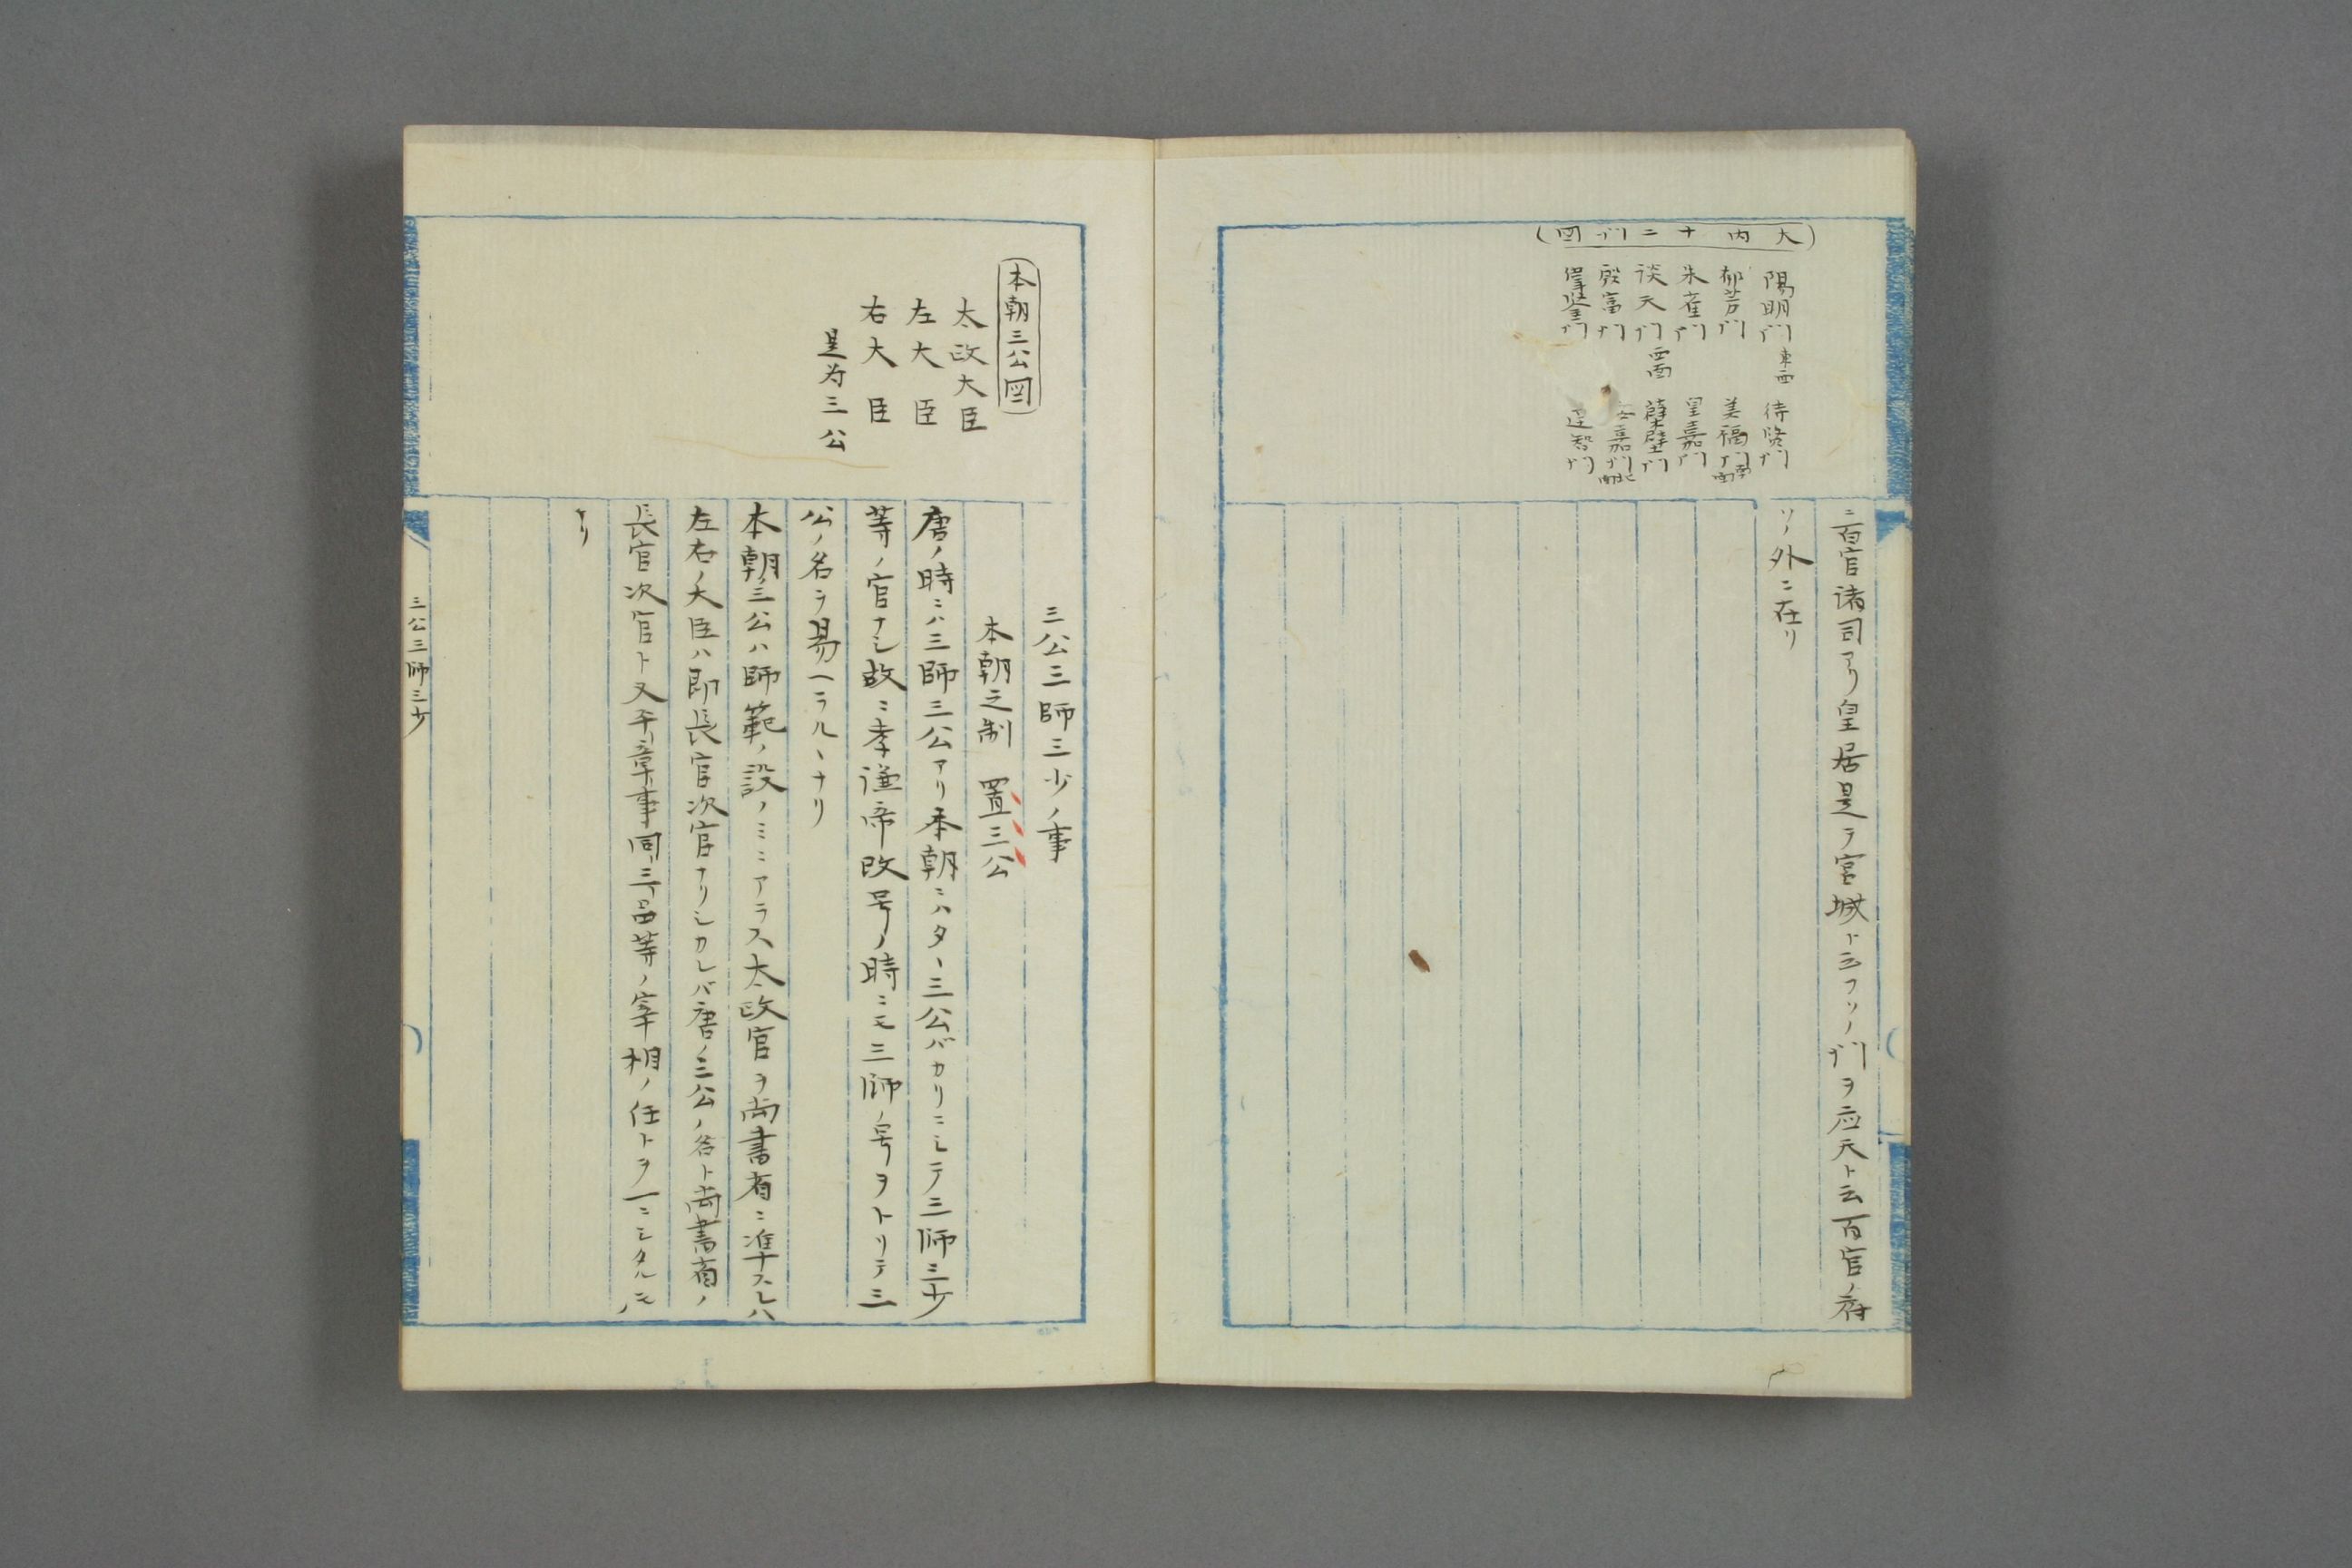 大内十二門図
陽明門 東面 待賢門
郁芳門 美福門 南面
朱雀門 皇嘉門
談天門 西面 藻壁門
殷富門 嘉門 北面
偉鑒門 達智門
ニ百官諸司アリ皇居是ヲ宮城ト云フソノ門ヲ応天ト云百官ノ府
ソノ外ニ在リ
本朝三公図
太政大臣
左大臣
右大臣
是为三公
三公三師三少ノ事
本朝之制 置三公
唐ノ時ニハ三師三公アリ本朝ニハタヽ三公バカリニシテ三師三少
等ノ官ナシ故ニ孝謙帝改号ノ時ニモ三師ノ号ヲトリテ三
公ノ名ヲ易ヘラルヽナリ
本朝ノ三公ハ師範ノ設ノミニアラス太政官ヲ尚書省ニ准スレハ
左右ノ大臣ハ即長官次官ナリシカレバ唐ノ三公ノ名ト尚書省ノ
長官次官ト又平章事同三品等ノ宰相ノ任トヲ一ニシタルモノ
ナリ
三公三師三少